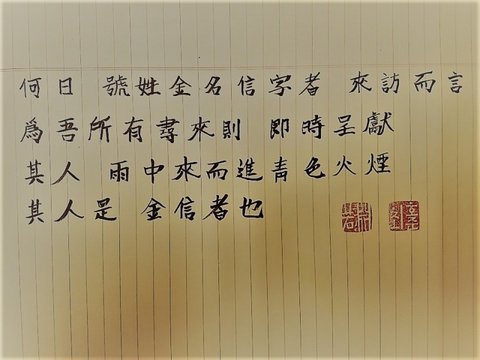 何日 號姓金名信字者 來訪而言
爲吾所有尋來則 即時呈獻
其人 雨中來而進靑色火煙
其人是 金信者也